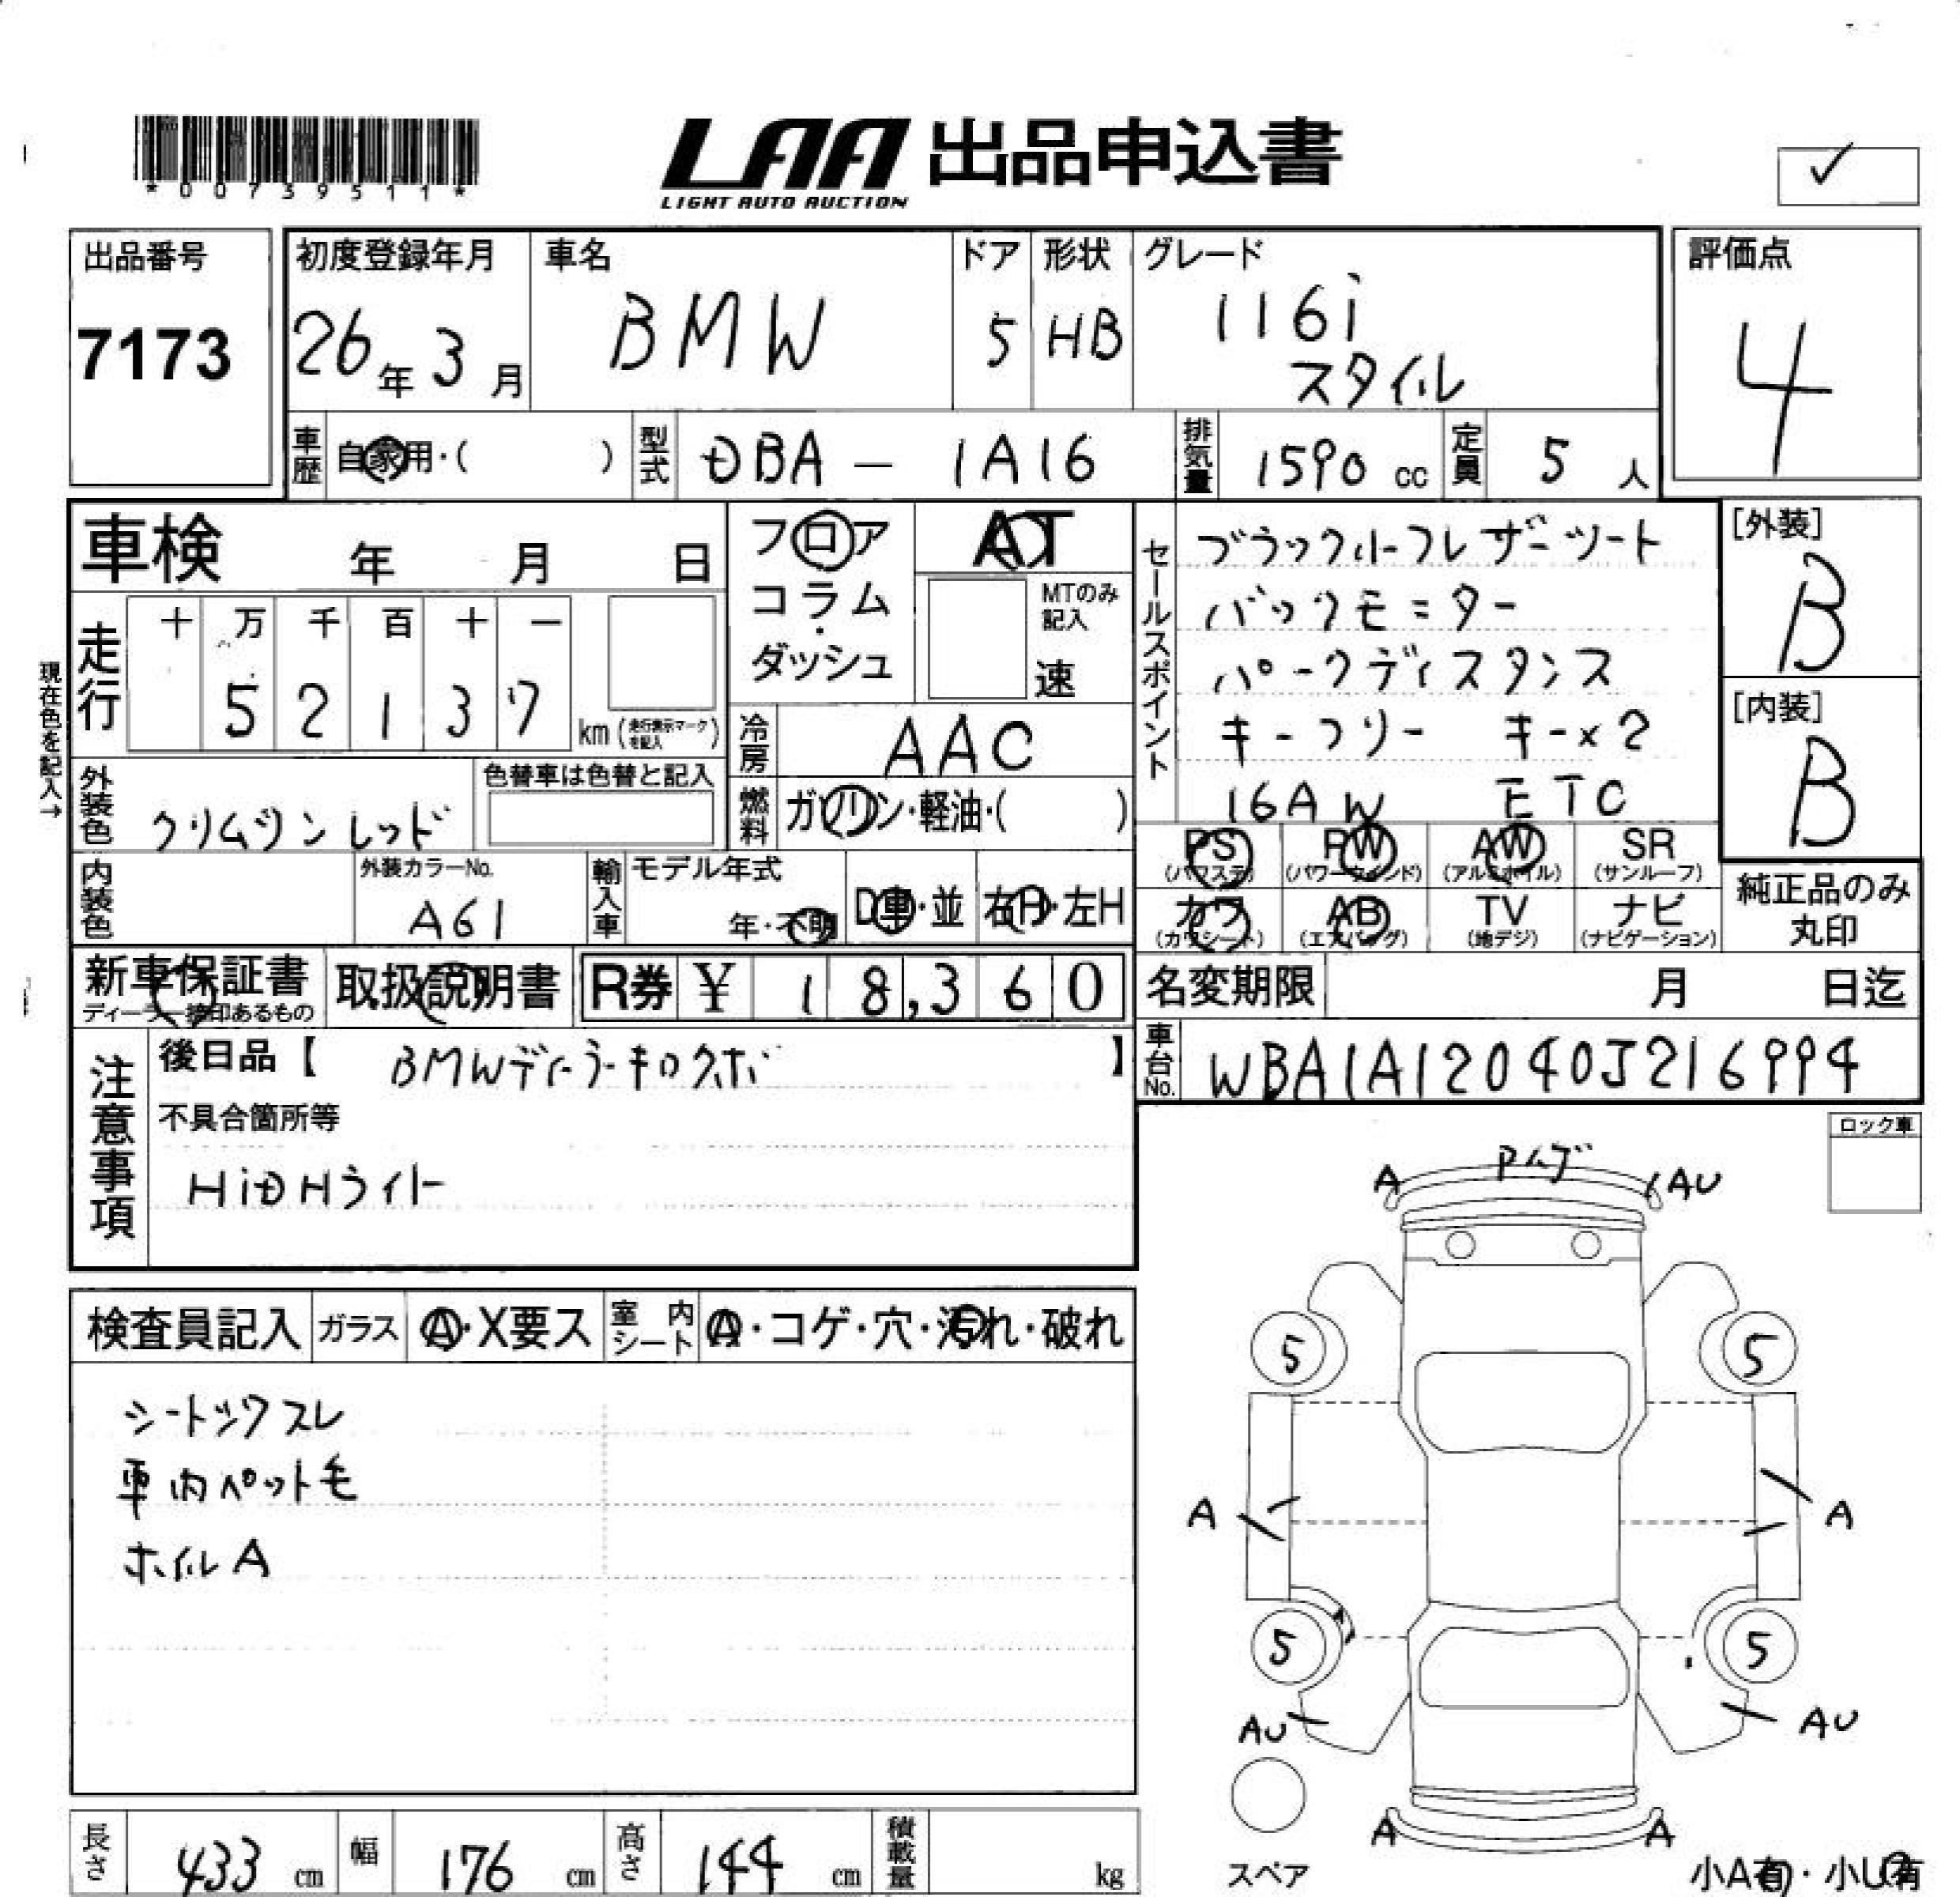 *00739511*
LAA 出品申込書
LIGHT AUTO AUCTION
✓
出品番号
7173
初度登録年月
26年3月
車名
BMW
ドア
5
形状
HB
グレード
116i
スタイル
評価点
4
車歴 自家用・( )
型式 DBA - 1A16
排気量 1590 cc
定員 5 人
車検 年 月 日
フロア
コラム・
ダッシュ
AT
MTのみ記入
速
現在色を記入→
走行
十 万 千 百 十 一
5 2 1 3 7 km (走行表示マークを記入)
冷房 AAC
外装色 クリムゾンレッド
色替車は色替と記入
燃料 ガソリン・軽油・( )
内装色
外装カラーNo.
A61
輸入車 モデル年式
年・不明
D車・並
右H・左H
セールスポイント
ブラックハーフレザーシート
バックモニター
パークディスタンス
キーフリー キー×2
16AW ETC
[外装]
B
[内装]
B
PS (パワステ)
PW (パワーウィンド)
AW (アルミホイル)
SR (サンルーフ)
カワ (カワシート)
AB (エアバッグ)
TV (地デジ)
ナビ (ナビゲーション)
純正品のみ
丸印
新車保証書
ディーラー捺印あるもの
取扱説明書
R券 ¥ 18,360
名変期限 月 日迄
車台No. WBA1A12040J216994
注意事項
後日品【 BMWディーラーキロクボ 】
不具合箇所等
HiDHライト
ロック車
A
AU
検査員記入
ガラス A・X要ス
室内シート A・コゲ・穴・汚れ・破れ
シートシワスレ
車内ペット毛
ホイルA
5
5
A
A
5
5
AU
AU
A
A
スペア
小A有・小U有
長さ 433 cm
幅 176 cm
高さ 144 cm
積載量 kg